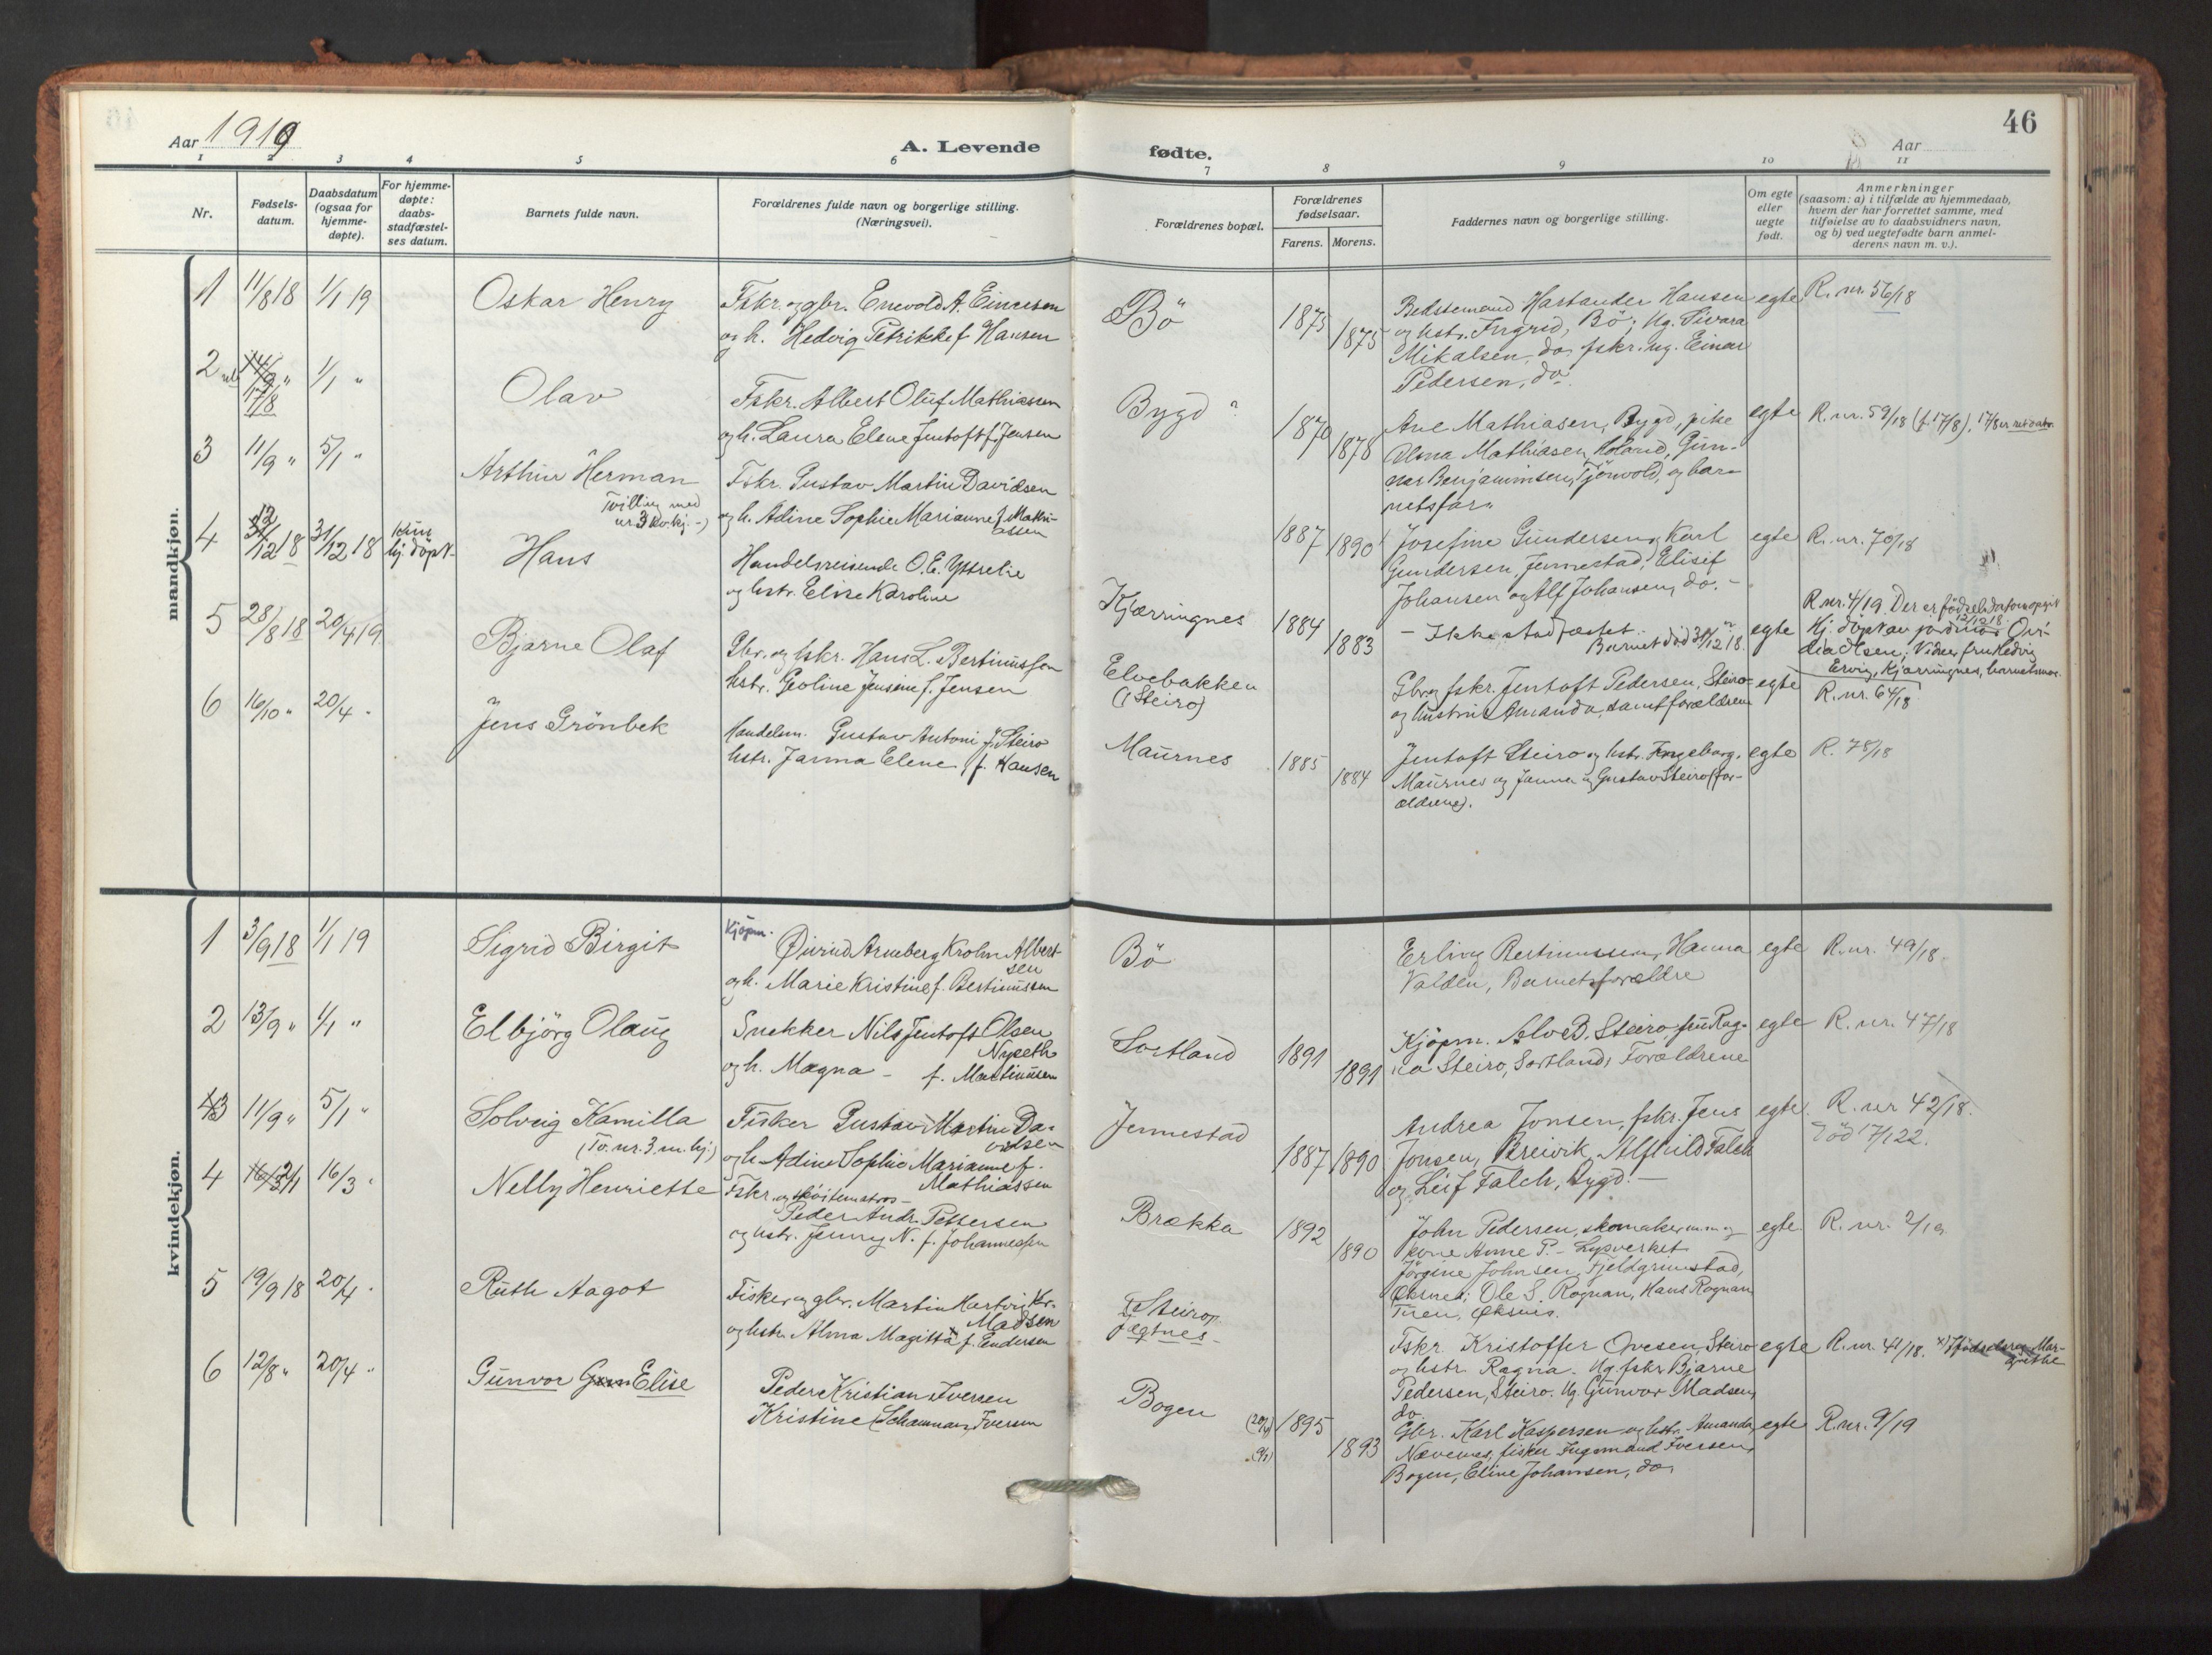 46
Aar 1919
A. Levende
fødte.
Aar
1 2 3 4 5 6 7 8 9 10 11
Nr.
Fødsels-
datum.
Daabsdatum
(ogsaa for
hjemme-
døpte).
For hjemme-
døpte:
daabs-
stadfæstel-
ses datum.
Barnets fulde navn.
Forældrenes fulde navn og borgerlige stilling.
(Næringsvei).
Forældrenes bopæl.
Forældrenes
fødselsaar.
Farens. Morens.
Faddernes navn og borgerlige stilling.
Om egte
eller
uegte
født.
Anmerkninger
(saasom: a) i tilfælde av hjemmedaab,
hvem der har forrettet samme, med
tilføielse av to daabsvidners navn,
og b) ved uegtefødte barn anmel-
derens navn m. v.).
mandkjøn.
1 11/8 18 1/1 19 Oskar Henry
Fskr. og gbr. Enevold A. Einersen
og h. Hedvig Petrikke f. Hansen
Bö
1875 1875
Bedstemand Hartander Hansen
og hstr. Ingrid, Bö; Ug. Sivara
Mikalsen, do, fskr. ug. Einar
Pedersen, do.
egte
R. nr. 56/18
2 14/9 " 17/8 1/1 " Olav
Fskr. Albert Oluf Mathiassen
og h. Laura Elene Jentoft f. Jensen
Bygd ?
1870 1878
Ane Mathiasen, Bygd, pike
Alma Mathiasen, Holand, Gun-
nar Benjaminsen, Tjönvold, og bar-
netsfar.
egte
R. nr. 59/18 (f. 17/8), 17/8 er ret dato.
3 11/9 " 5/1 " Arthur Herman
Tvilling med
nr 3 kv.kj. -)
Fskr. Gustav Martin Davidsen
og h. Adine Sophie Marianne f. Mathi-
assen
1887 1890
Josefine Gundersen, Karl
Gundersen, Jennestad, Elisif
Johansen og Alf Johansen, do. -
egte
R. nr. 70/18
4 12/12 18 31/12 18 kun
hj. döpt Hans
Handelsreisende O. E. Yttrelie
og hstr. Elise Karoline
Kjærringnes
1884 1883
- Ikke stadfæstet.
Barnet död 31/12 18.
egte
R. nr. 4/19. Der er födselsdatoen opgit
12/12 18.
Hj. döpt av jordmor Ovi-
dia Olsen; Vidner fru Hedvig
Ervig, Kjærringnes, barnets mor.
5 28/8 18 20/4 19 Bjarne Olaf
Gbr. og fskr. Hans L. Bertinussen
hstr. Geoline Jensine f. Jensen
Elvebakken
(Steiro)
Gbr og fskr. Jentoft Pedersen, Steiro
og hustru Amanda, samt forældrene
egte
R. nr. 64/18
6 16/10 " 20/4 - Jens Grönbek
Handelsm. Gustav Antoni J. Steiro
hstr. Janna Elene f. Hansen
Maurnes
1885 1884
Jentoft Steiro og hstr. Ingeborg,
Maurnes og Janna og Gustav Steiro (for-
ældrene).
egte
R. 78/18
kvindekjøn.
1 3/9 18 1/1 19 Sigrid Birgit
Kjöpm.
Öivind Arneberg Krohn Albert-
sen
og h. Marie Kristine f. Bertinussen
Bö
Erling Bertinussen, Hanna
Valden, Barnets forældre
egte
R. nr. 49/18.
2 13/9 " 1/1 " Elbjörg Olaug
Snekker Nils Jentoft Olsen
Nyseth
og h. Magna - f. Martinusen
Sortland
1891 1891
Kjöpm. Alv B. Steiro, fru Rag-
na Steiro, Sortland, Forældrene
egte
R. nr. 47/18
3 11/9 " 5/1 " Solveig Kamilla
(Tv. nr. 3. m. kj.)
Fisker Gustav Martin Da-
vidsen
og h. Adine Sophie Marianne f.
Mathiassen
Jennestad
1887 1890
Andrea Jonsen, fskr. Jens
Jonsen, Breivik, Alfhild Falch
og Leif Falch, Bygd. -
egte
R. nr 42/18.
Död 17/1 22.
4 2/1 16/3 - Nelly Henriette
Fskr. og sköitemstros -
Peder Andr. Pettersen
og hstr. Jenny N. f. Johannessen
Brækka
1892 1890
John Pedersen, skomaker m. m. og
kone Anne P. - Lysverket
Jörgine Johnsen, Fjeldgrimstad,
Öksnes; Ole S. Rognan, Hans Rognan
Tuen, Öksnes.
egte
R. nr. 2/19.
5 19/9 18 20/4 - Ruth Aagot
Fisker og gbr. Martin Hartvi Kr.
Madsen
og hstr. Alma Magitta x f. Endersen
Steiro,
Jægtnes -
Fskr. Kristoffer Ovesen, Steiro
og hstr. Ragna. Ug. fskr. Bjarne
Pedersen, Steiro. Ug. Gunvor Madsen,
do
egte
R. nr. 41/18. x) I födselsreg. Mar-
grethe
6 12/8 " 20/4 - Gunvor Elise
Peder Kristian Iversen
Kristine Iversen
Bogen
(20/4) 1895 1893
Gbr. Karl Kaspersen og hstr. Amanda,
Nævernes, fisker Ingemand Iversen,
Bogen, Eline Johansen, do.
egte
R. nr. 9/19